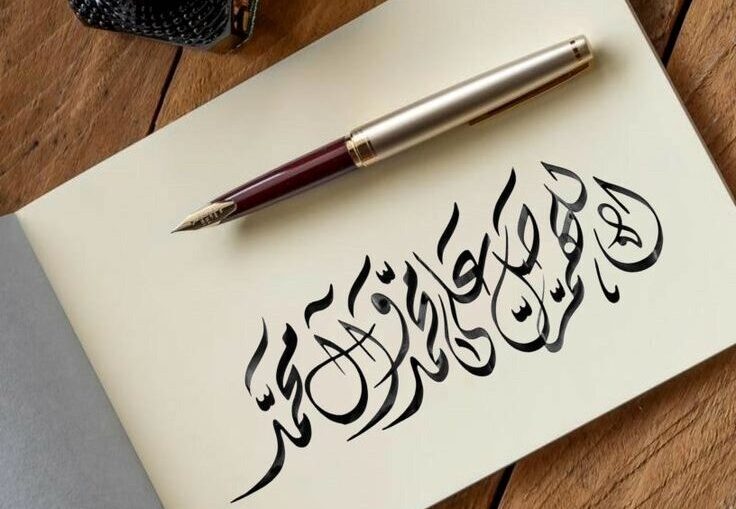 اللهم صلّ على محمد وّآل محمّد